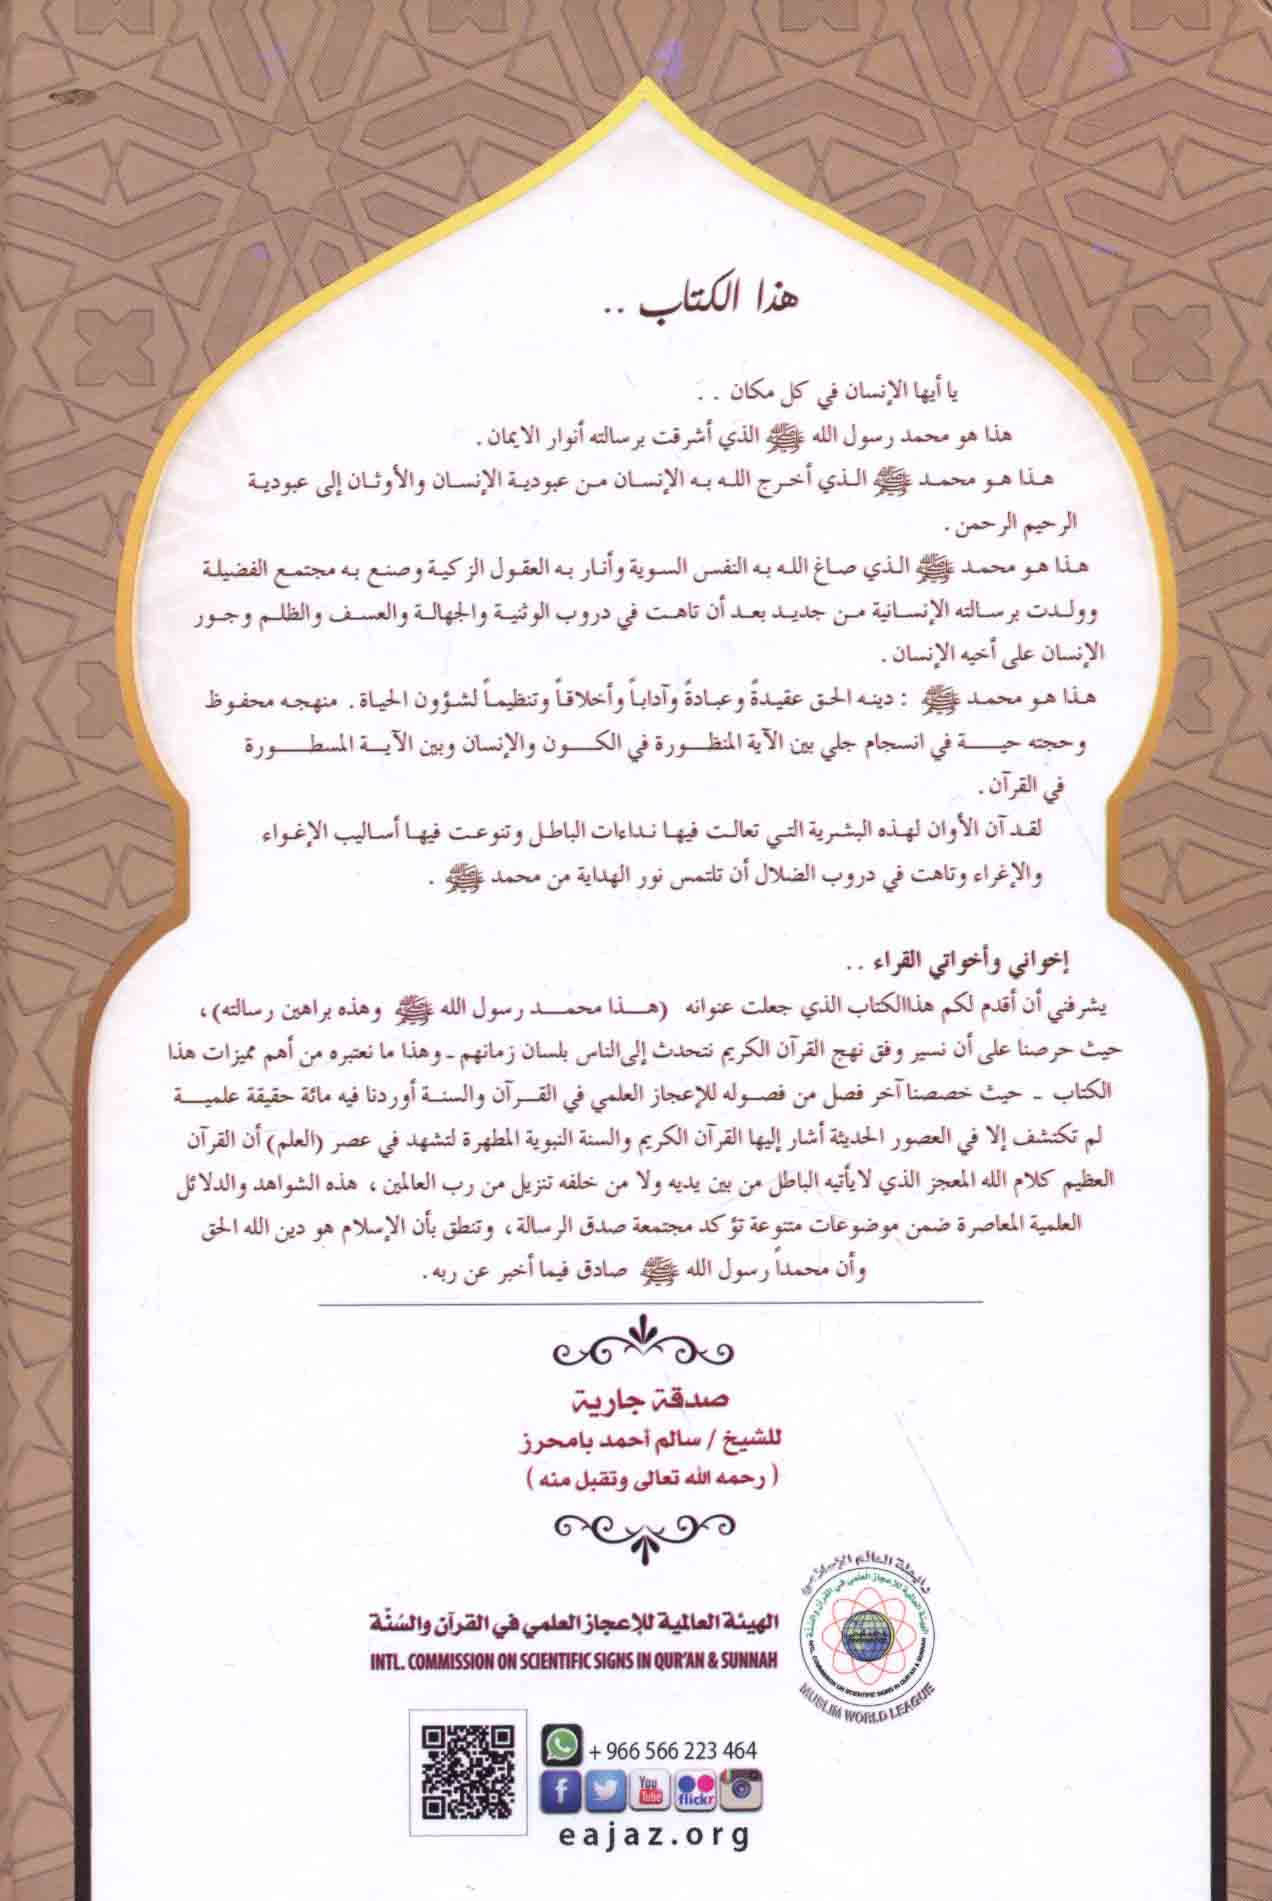 هذا الكتاب ..
يا أيها الإنسان في كل مكان . .
هذا هو محمد رسول الله ﷺ الذي أشرقت برسالته أنوار الايمان .
هذا هو محمد ﷺ الذي أخرج الله به الإنسان من عبودية الإنسان والأوثان إلى عبودية
الرحيم الرحمن .
هذا هو محمد ﷺ الذي صاغ الله به النفس السوية وأنار به العقول الزكية وصنع به مجتمع الفضيلة
وولدت برسالته الإنسانية من جديد بعد أن تاهت في دروب الوثنية والجهالة والعسف والظلم وجور
الإنسان على أخيه الإنسان .
هذا هو محمد ﷺ : دينه الحق عقيدةً وعبادةً وآداباً وأخلاقاً وتنظيماً لشؤون الحياة . منهجه محفوظ
وحجته حية في انسجام جلي بين الآية المنظورة في الكون والإنسان وبين الآية المسطورة
في القرآن .
لقد آن الأوان لهذه البشرية التي تعالت فيها نداءات الباطل وتنوعت فيها أساليب الإغواء
والإغراء وتاهت في دروب الضلال أن تلتمس نور الهداية من محمد ﷺ .
إخواني وأخواتي القراء ..
يشرفني أن أقدم لكم هذا الكتاب الذي جعلت عنوانه (هذا محمد رسول الله ﷺ وهذه براهين رسالته)،
حيث حرصنا على أن نسير وفق نهج القرآن الكريم نتحدث إلى الناس بلسان زمانهم - وهذا ما نعتبره من أهم مميزات هذا
الكتاب - حيث خصصنا آخر فصل من فصوله للإعجاز العلمي في القرآن والسنة أوردنا فيه مائة حقيقة علمية
لم تكتشف إلا في العصور الحديثة أشار إليها القرآن الكريم والسنة النبوية المطهرة لتشهد في عصر (العلم) أن القرآن
العظيم كلام الله المعجز الذي لا يأتيه الباطل من بين يديه ولا من خلفه تنزيل من رب العالمين ، هذه الشواهد والدلائل
العلمية المعاصرة ضمن موضوعات متنوعة تؤكد مجتمعة صدق الرسالة ، وتنطق بأن الإسلام هو دين الله الحق
وأن محمداً رسول الله ﷺ صادق فيما أخبر عن ربه .
صدقة جارية
للشيخ / سالم أحمد بامحرز
( رحمه الله تعالى وتقبل منه )
رابطة العالم الإسلامي
الهيئة العالمية للإعجاز العلمي في القرآن والسنة
INTL. COMMISSION ON SCIENTIFIC SIGNS IN QUR'AN & SUNNAH
MUSLIM WORLD LEAGUE
الهيئة العالمية للإعجاز العلمي في القرآن والسُنّة
INTL. COMMISSION ON SCIENTIFIC SIGNS IN QUR'AN & SUNNAH
+ 966 566 223 464
You Tube
flickr
eajaz.org